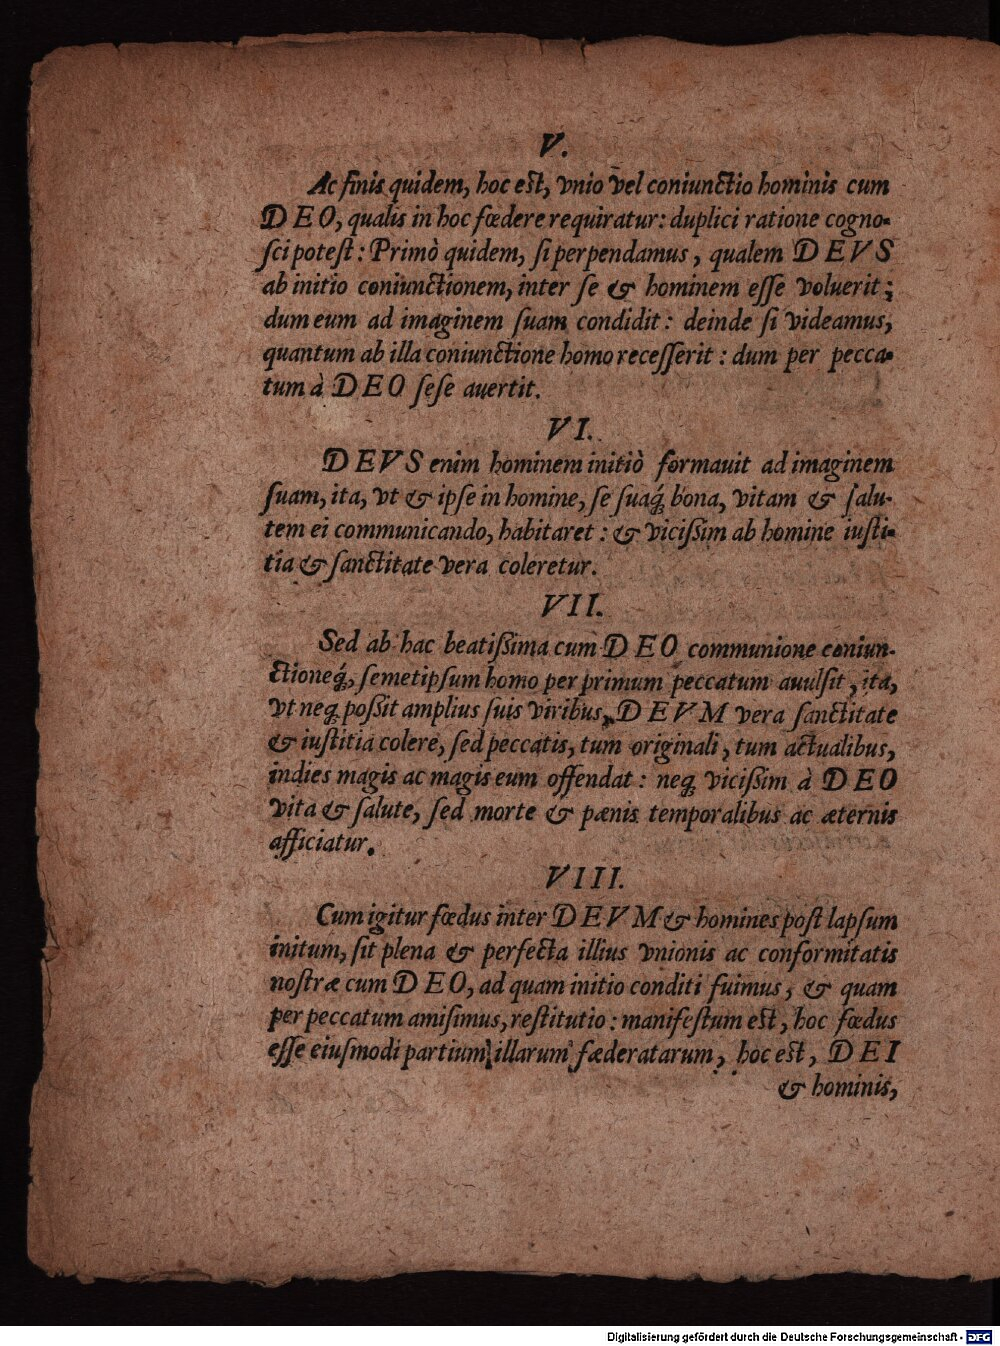 V.
Ac finis quidem, hoc est, vnio vel coniunctio hominis cum
DEO, qualis in hoc fœdere requiratur: duplici ratione cogno-
ſci poteſt: Primò quidem, ſi perpendamus, qualem DEVS
ab initio coniunctionem, inter ſe & hominem eſſe voluerit;
dum eum ad imaginem ſuam condidit: deinde ſi videamus,
quantum ab illa coniunctione homo receſſerit: dum per pecca-
tum à DEO ſeſe auertit.
VI.
DEVS enim hominem initiò formauit ad imaginem
ſuam, ita, vt & ipſe in homine, ſe ſuaq́; bona, vitam & ſalu-
tem ei communicando, habitaret: & vicißim ab homine iuſti-
tia & ſanctitate vera coleretur.
VII.
Sed ab hac beatißima cum DEO communione coniun-
ctioneq́;, ſemetipſum homo per primum peccatum auulſit, ita,
vt neq; poſſit amplius ſuis viribus, DEVM vera ſanctitate
& iuſtitia colere, ſed peccatis, tum originali, tum actualibus,
indies magis ac magis eum offendat: neq; viciſſim à DEO
vita & ſalute, ſed morte & pœnis temporalibus ac æternis
afficiatur.
VIII.
Cum igitur fœdus inter DEVM & homines poſt lapſum
initum, ſit plena & perfecta illius vnionis ac conformitatis
noſtræ cum DEO, ad quam initio conditi fuimus, & quam
per peccatum amiſimus, reſtitutio: manifeſtum est, hoc fœdus
eſſe eiuſmodi partium illarum fœderatarum, hoc est, DEI
& hominis,
Digitalisierung gefördert durch die Deutsche Forschungsgemeinschaft - DFG